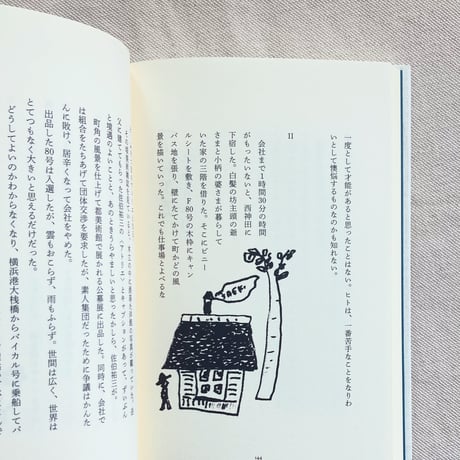 一度として才能があると思ったことはない。ヒトは、一番苦手なことをなりわ
いとして懊悩するものなのかも知れない。
II
会社まで1時間30分の時間
がもったいないと、西神田に
下宿した。白髪の坊主頭の爺
さまと小柄の婆さまが暮らして
いた家の三階を借りた。そこにビニー
ルシートを敷き、F80号の木枠にキャン
バス地を張り、壁にたてかけて町かどの風
景を描いていった。これでも仕事場とよべるな
と境遇のよこに、あのときうらやましいと思ったかしら、佐伯祐三が、ずいぶん
町角の風景を仕上げて都美術館で展かれる公募展に出品した。同時に、会社で
は組合をたちあげて団体交渉を要求したが、素人集団だったために争議はかんた
んに敗け、居辛くなって会社をやめた。
出品した80号は入選したが、雲もおこらず、雨もふらず。世間は広く、世界は
とてつもなく大きいと思えるだけだった。
どうしてよいのかわからなくなり、横浜港大桟橋からバイカル号に乗船してバ